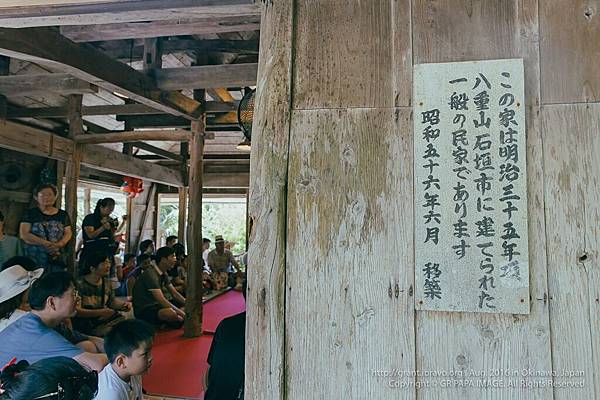 この家は明治三十五年頃
八重山石垣市に建てられた
一般の民家であります
昭和五十六年六月　移築
http://grant.ibravo.org's Aug. 2016 in Okinawa, Japan
Copyright © GR PAPA IMAGE. All Rights Reserved